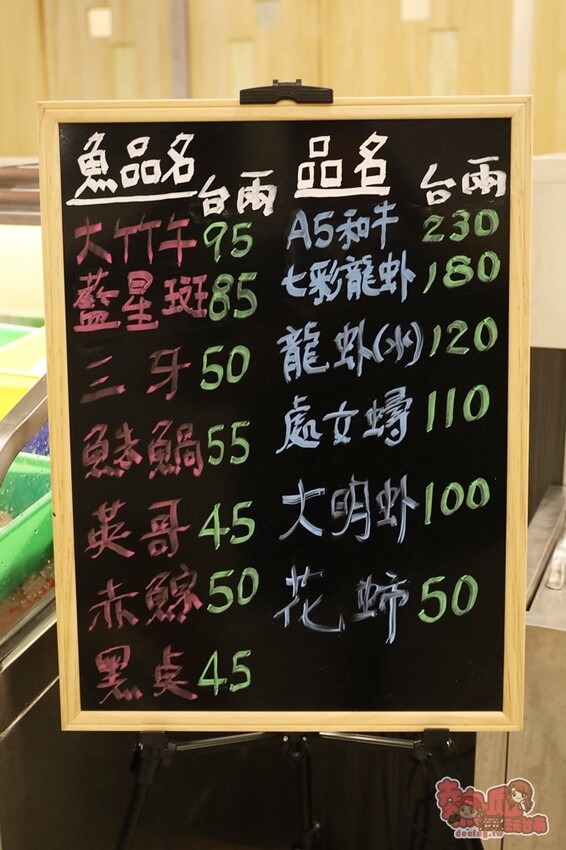 魚品名 台兩
大竹午 95
藍星斑 85
三牙 50
鮢鍋 55
英哥 45
赤鯮 50
黑点 45
品名 台兩
A5和牛 230
七彩龍虾 180
龍虾(水) 120
處女蟳 110
大明虾 100
花蛳 50